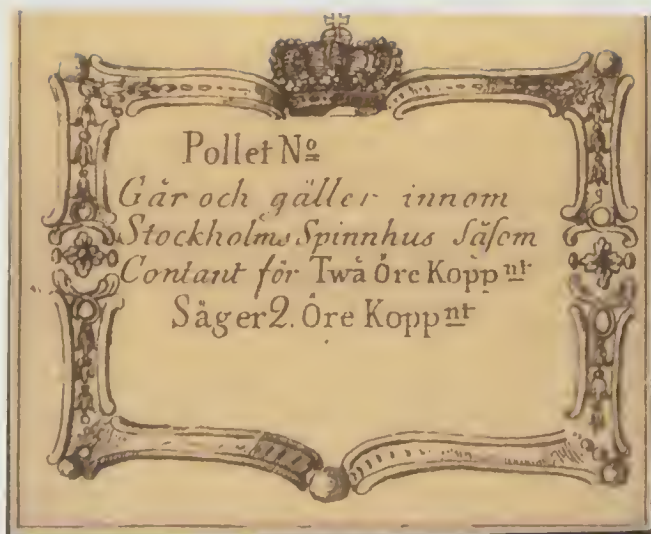 Pollet Nº
Går och gäller innom
Stockholms Spinnhus såsom
Contant för Twå Öre Koppnt
Säger 2. Öre Koppnt